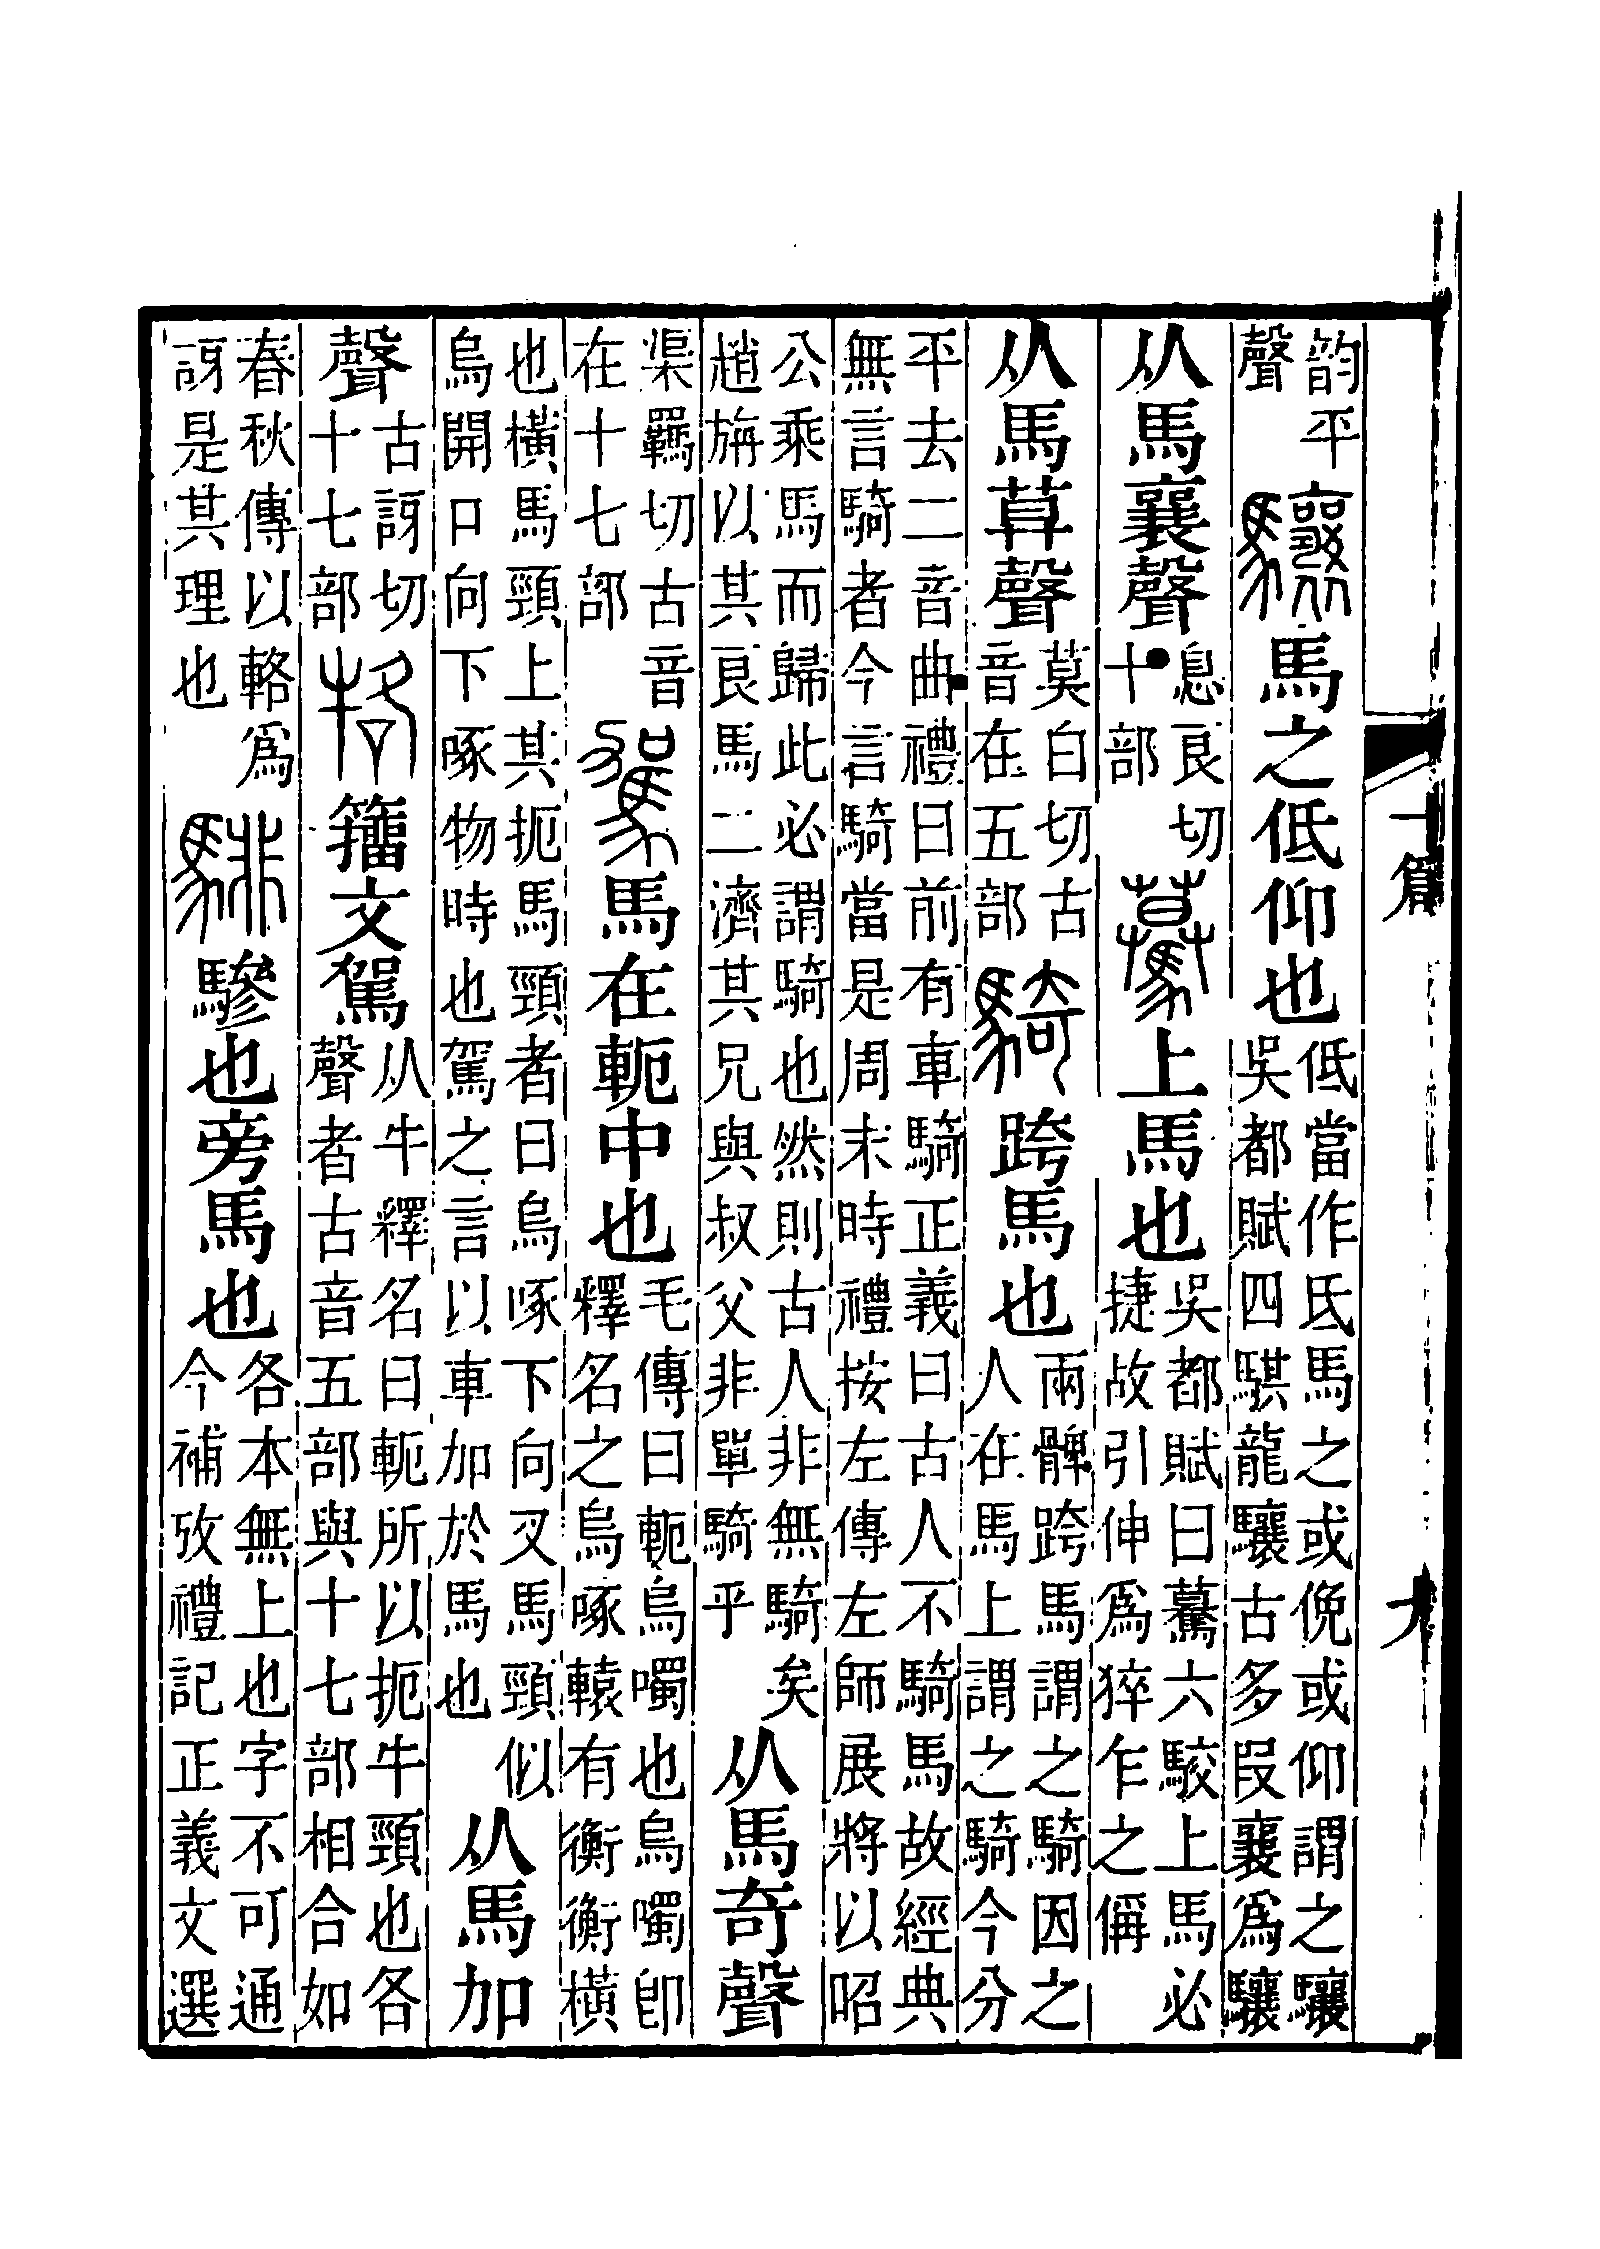 韵平聲驤馬之低仰也低當作氐馬之或俛或仰謂之驤吳都賦四騏龍驤古多叚襄爲驤
从馬襄聲息良切十部驀上馬也吳都賦曰驀六駮上馬必捷故引伸爲猝乍之偁
从馬莫聲莫白切古音在五部騎跨馬也兩髀跨馬謂之騎因之人在馬上謂之騎今分
平去二音曲禮曰前有車騎正義曰古人不騎馬故經典無言騎者今言騎當是周末時禮按左傳左師展將以昭
公乘馬而歸此必謂騎也然則古人非無騎矣趙旃以其良馬二濟其兄與叔父非單騎乎从馬奇聲
渠羈切古音在十七部駕馬在軛中也毛傳曰軛烏噣也烏噣卽釋名之烏啄轅有衡衡橫
也橫馬頸上其扼馬頸者曰烏啄下向叉馬頸似烏開口向下啄物時也駕之言以車加於馬也从馬加
聲古訝切十七部㸺籒文駕从牛釋名曰軛所以扼牛頸也各聲者古音五部與十七部相合如
春秋傳以輅爲訝是其理也騑驂也旁馬也各本無上也字不可通今補攷禮記正義文選
十篇
九